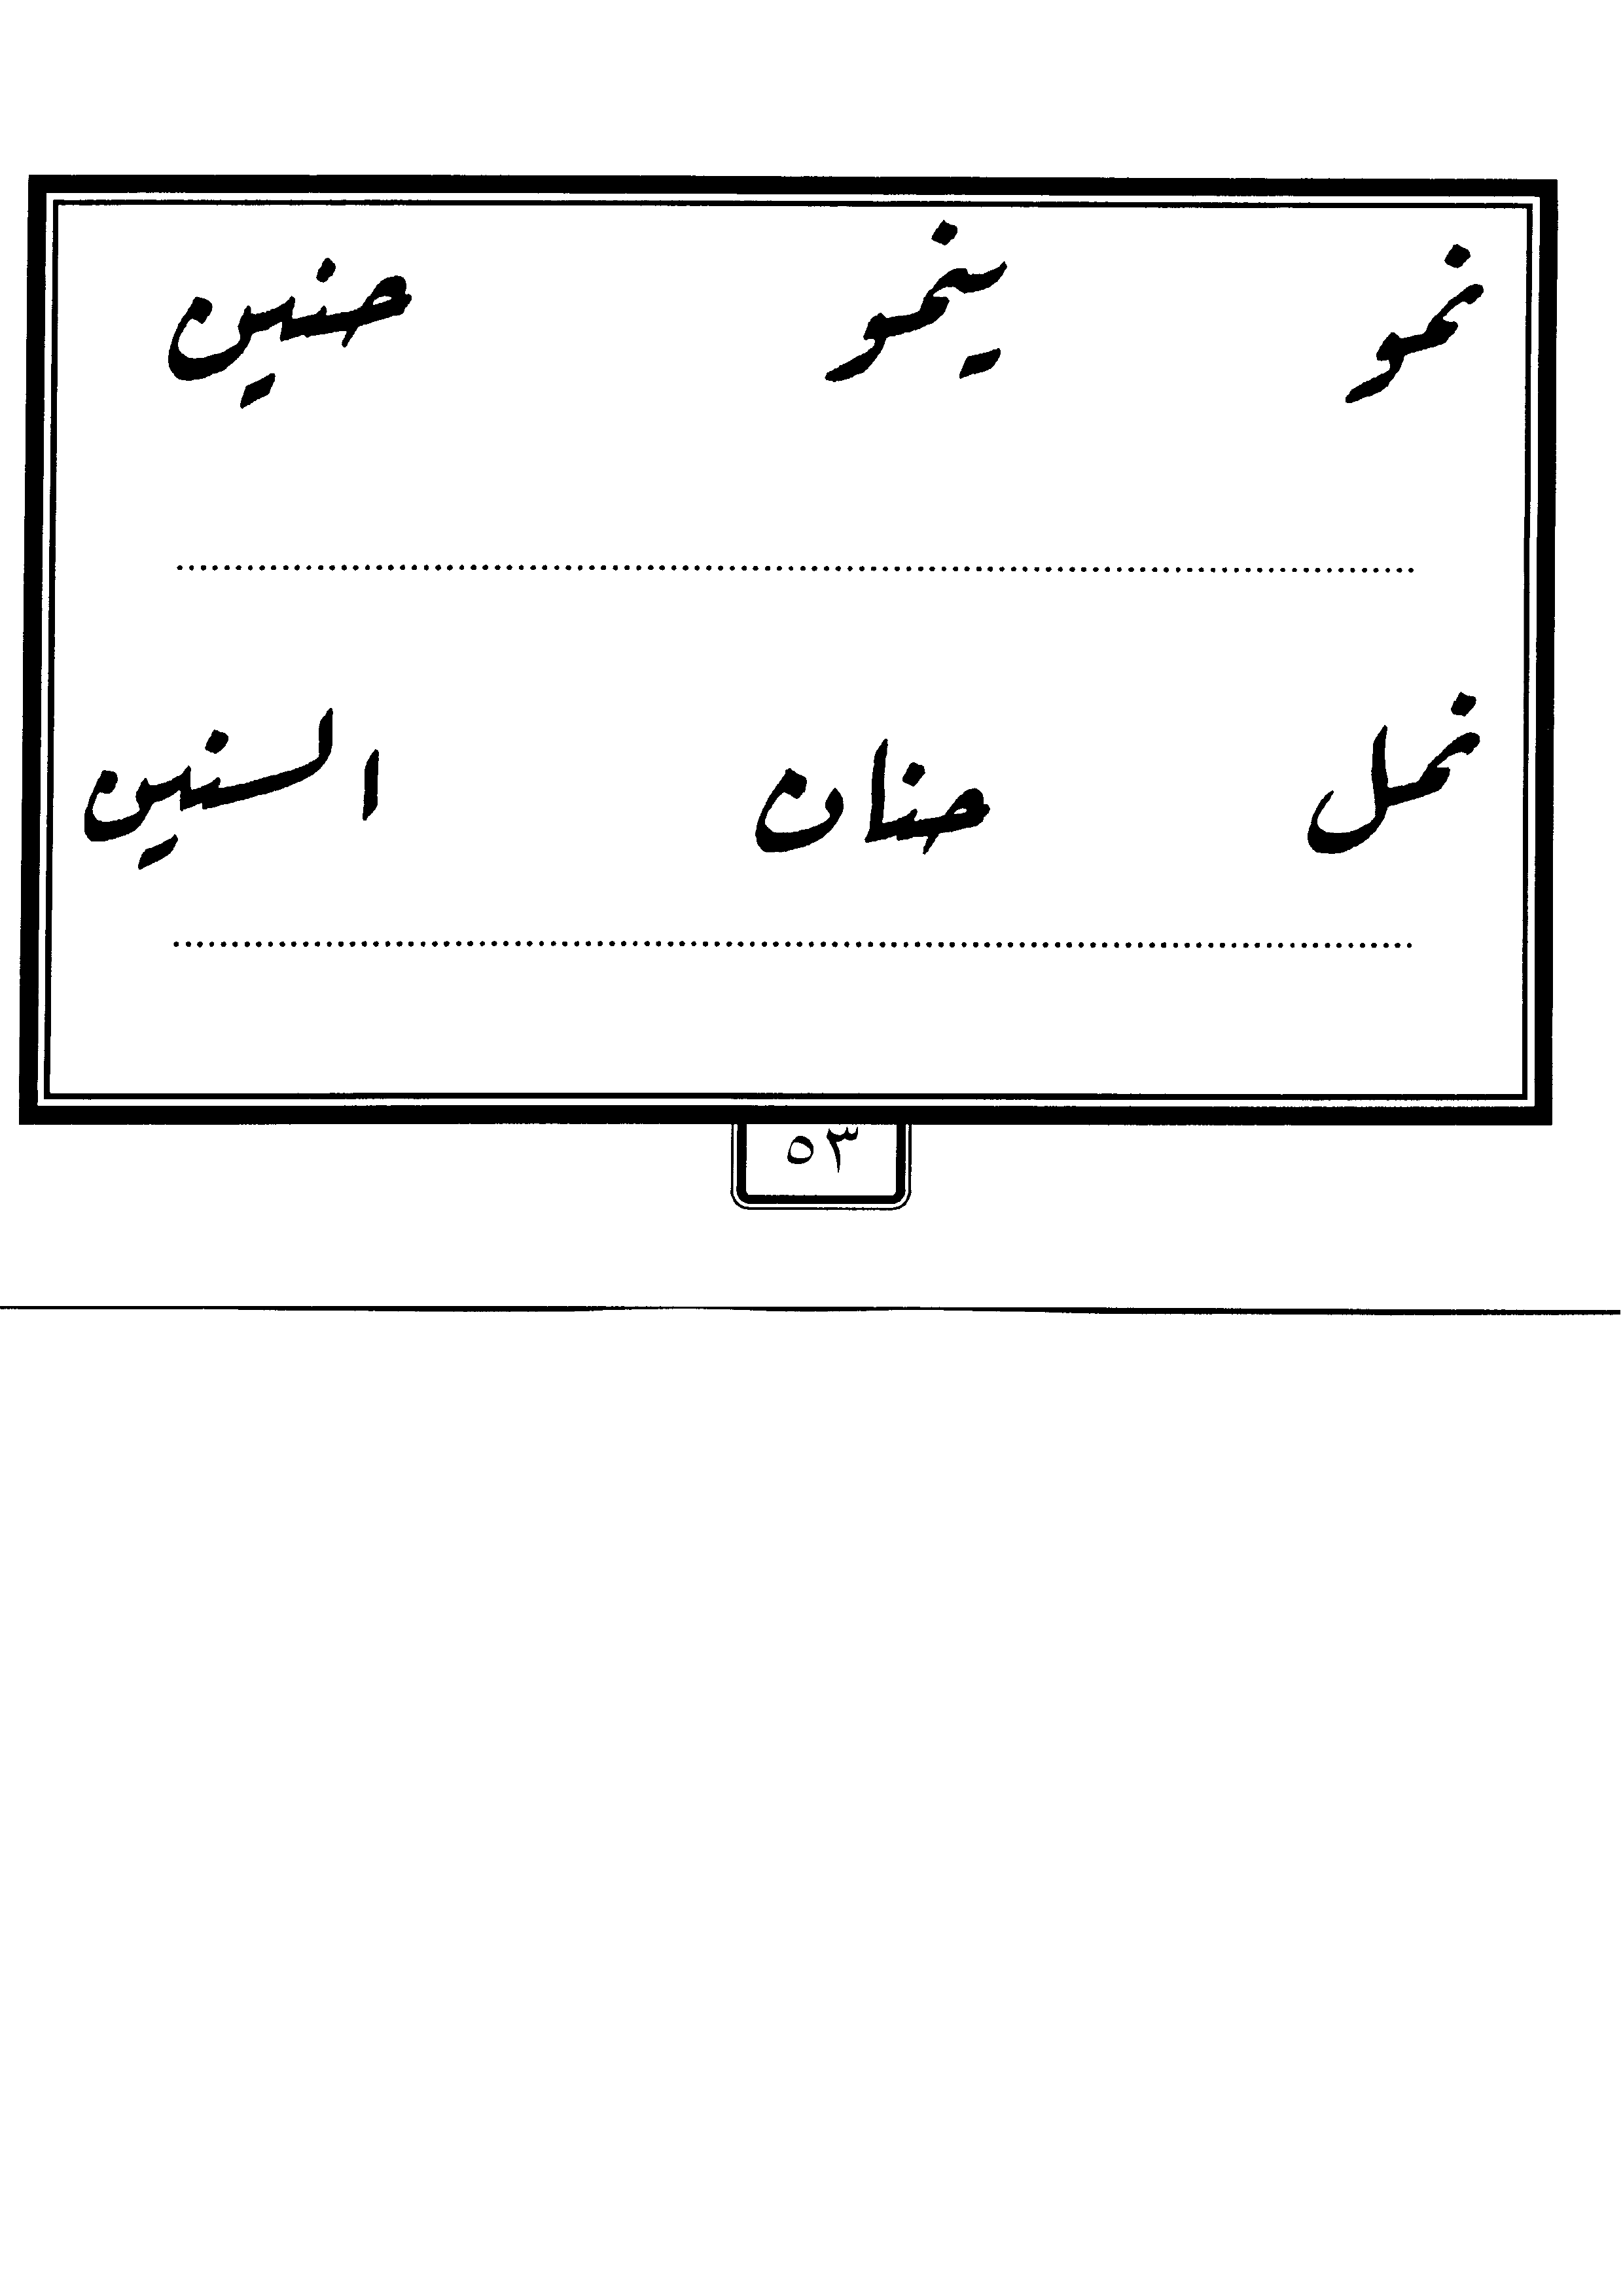 نمو ينمو حنين
نمل حنان السنين
٥٣